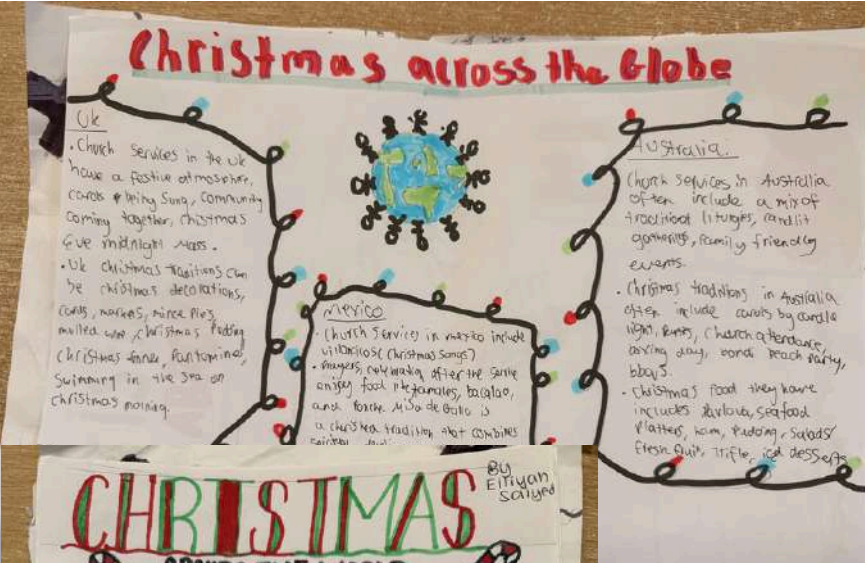 Christmas across the Globe
Uk
• Church services in the Uk
have a festive atmosphere,
carols being sung, community
coming together, christmas
Eve midnight Mass.
• Uk christmas traditions can
be christmas decorations,
cards, markets, mince pies,
mulled wine, christmas Pudding
christmas dinner, Pantomime,
Swimming in the sea on
christmas morning.
Mexico
• Church Services in mexico include
villancicos (christmas songs)
• Prayers, celebration after the service
enjoy food like tamales, bacalao,
and Ponche. Misa de Gallo is
a tradition that combines
Australia.
Church Services in Australia
often include a mix of
traditional liturgies, candlit
gatherings, family friendly
events.
• Christmas traditions in Australia
often include carols by candle
light, Church attendance,
boxing day, bondi beach party,
bbqs.
• Christmas food they have
includes Pavlova, seafood
Platters, ham, Pudding, Salads/
Fresh fruit, Trifle, iced desserts
CHRISTMAS
By
Eliyan
Saiyed